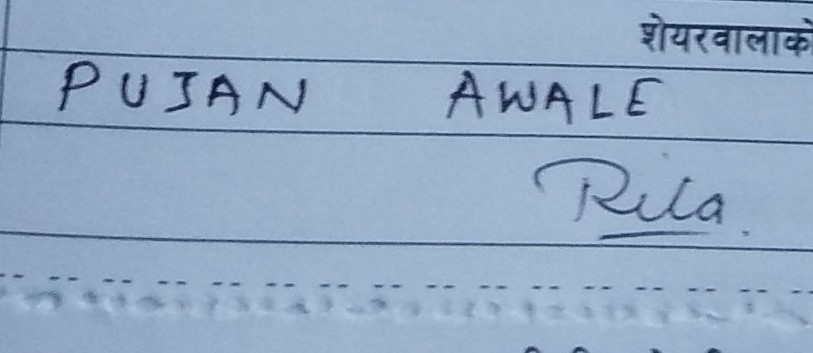 शेयरवालाको
PUJAN AWALE
Rita.